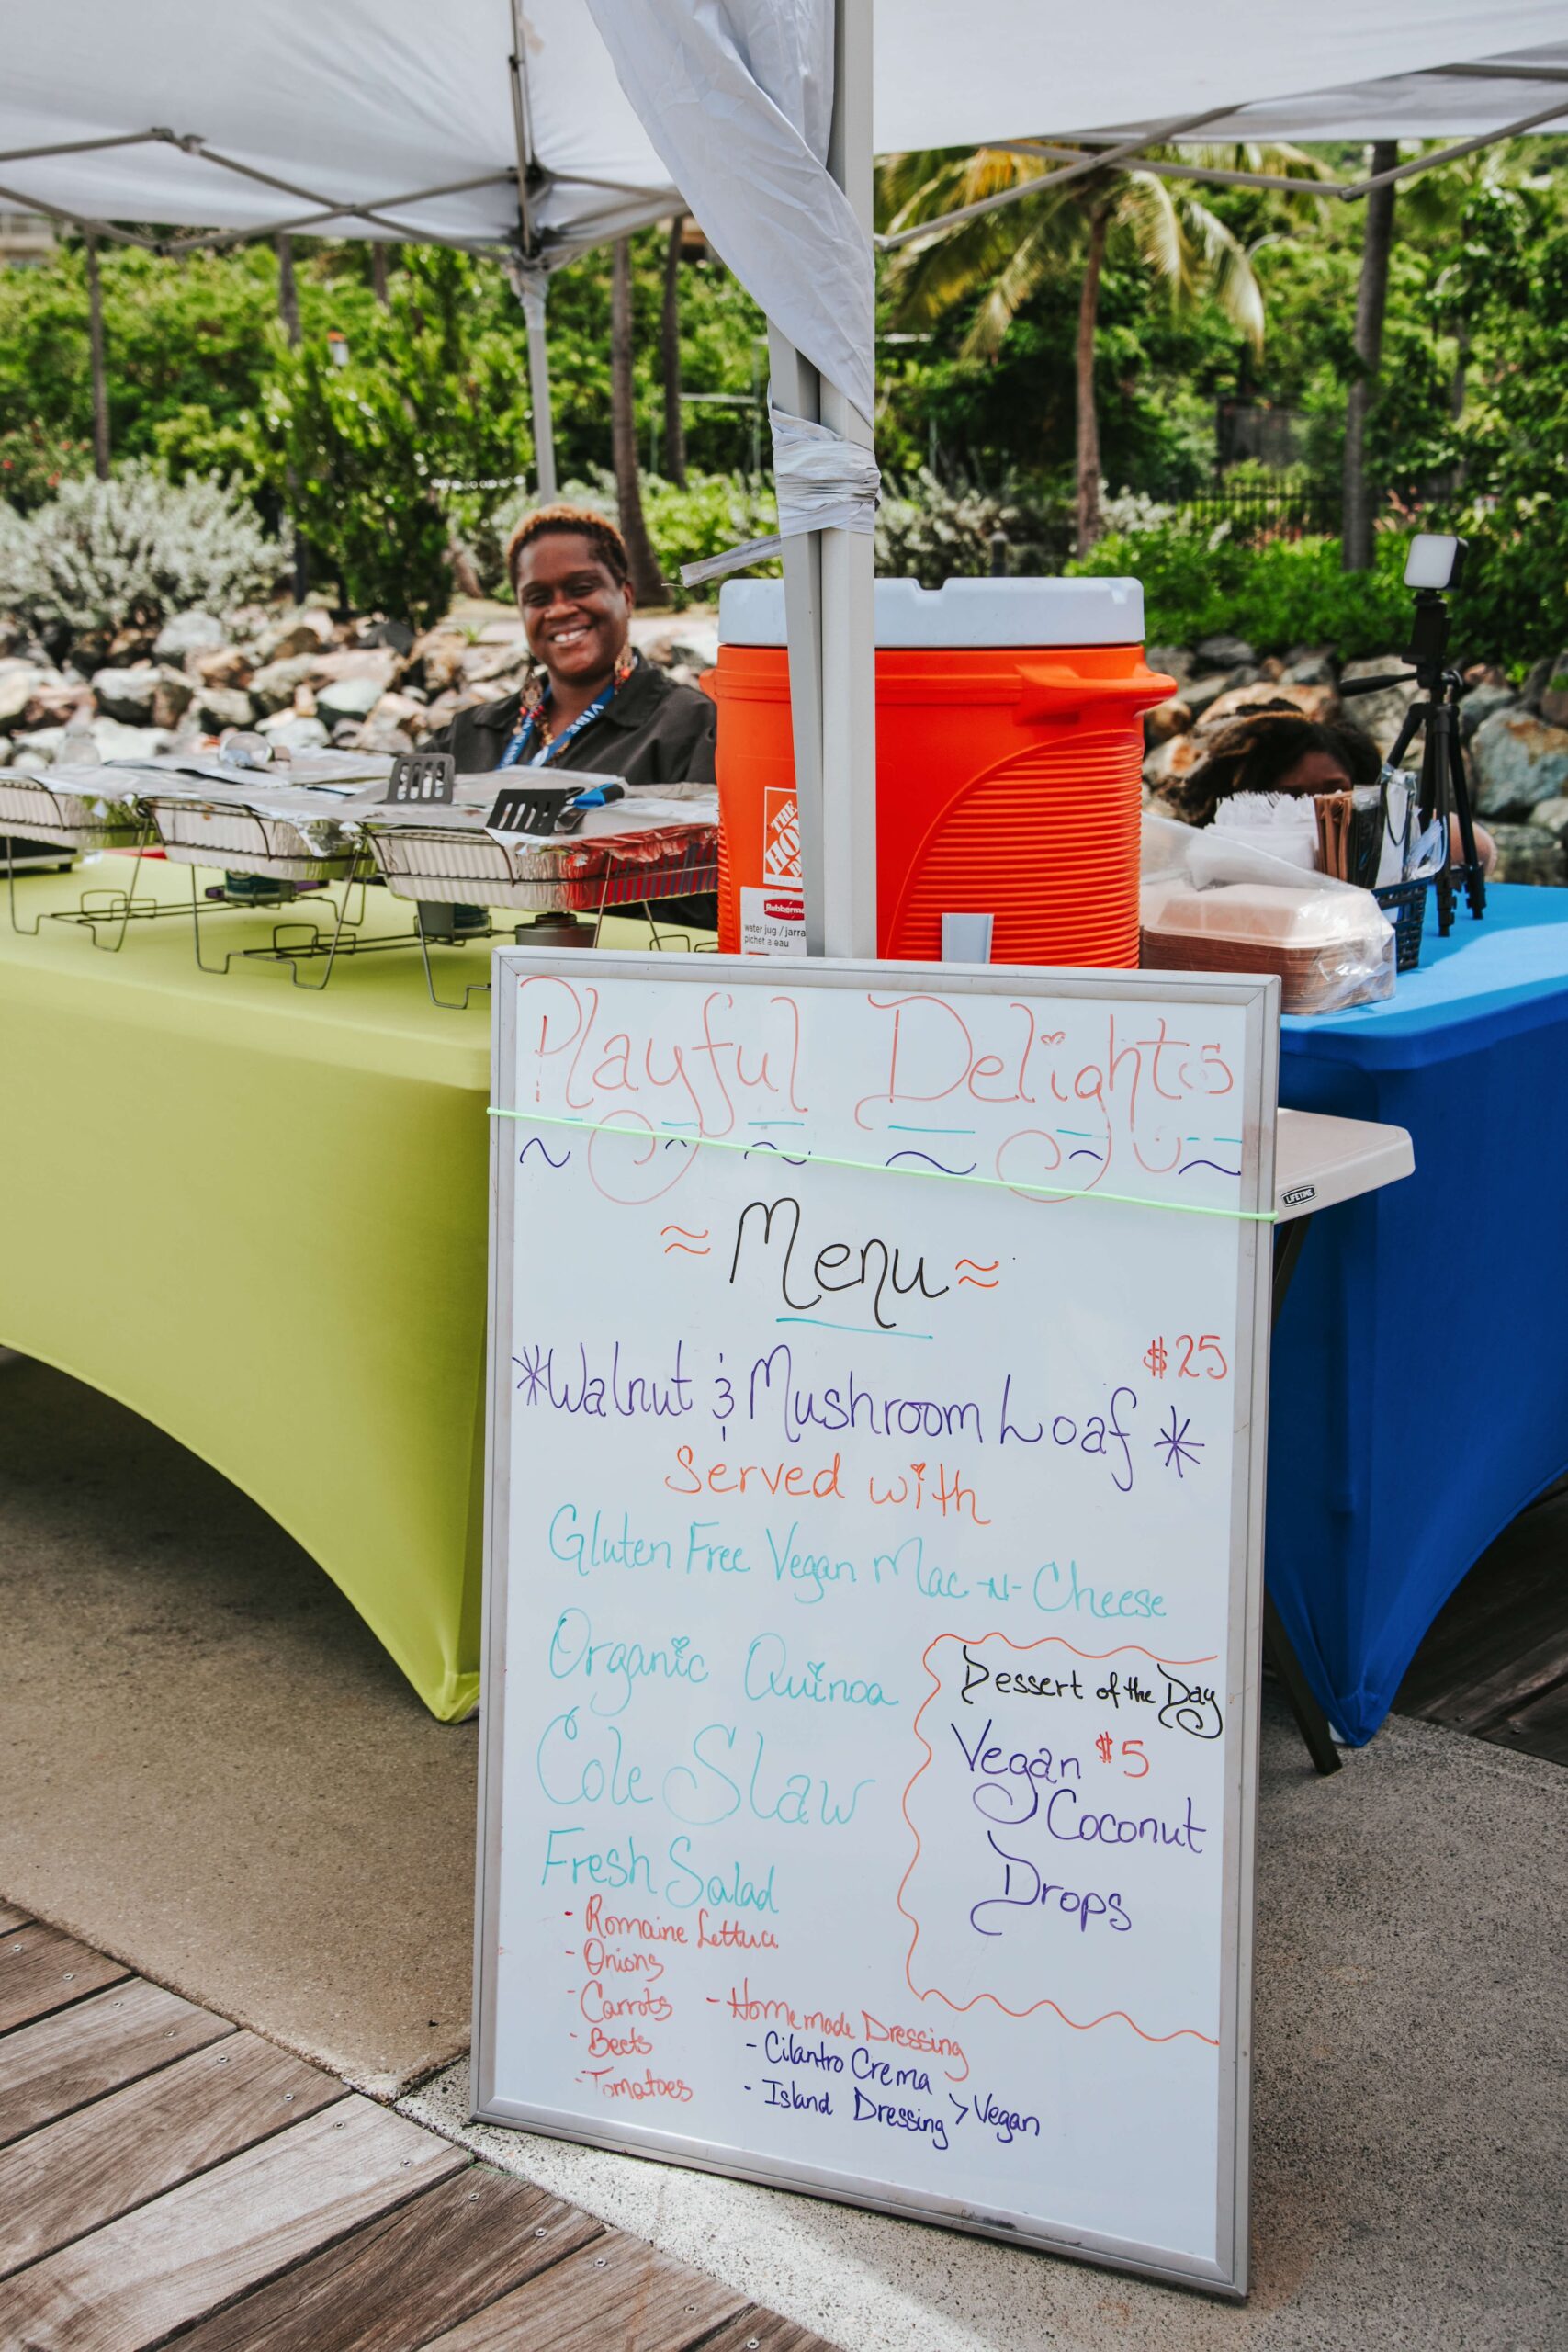 VIBE
THE
HO
Rubberma
water jug / jarra
pichet à eau
Playful Delights
LIFETIME
≈ Menu ≈
$25
*Walnut & Mushroom Loaf *
Served with
Gluten Free Vegan Mac-N-Cheese
Organic Quinoa
Cole Slaw
Fresh Salad
- Romaine Lettuce
- Onions
- Carrots
- Beets
- Tomatoes
- Homemade Dressing
- Cilantro Crema
- Island Dressing > Vegan
Dessert of the Day
Vegan $5
Coconut
Drops